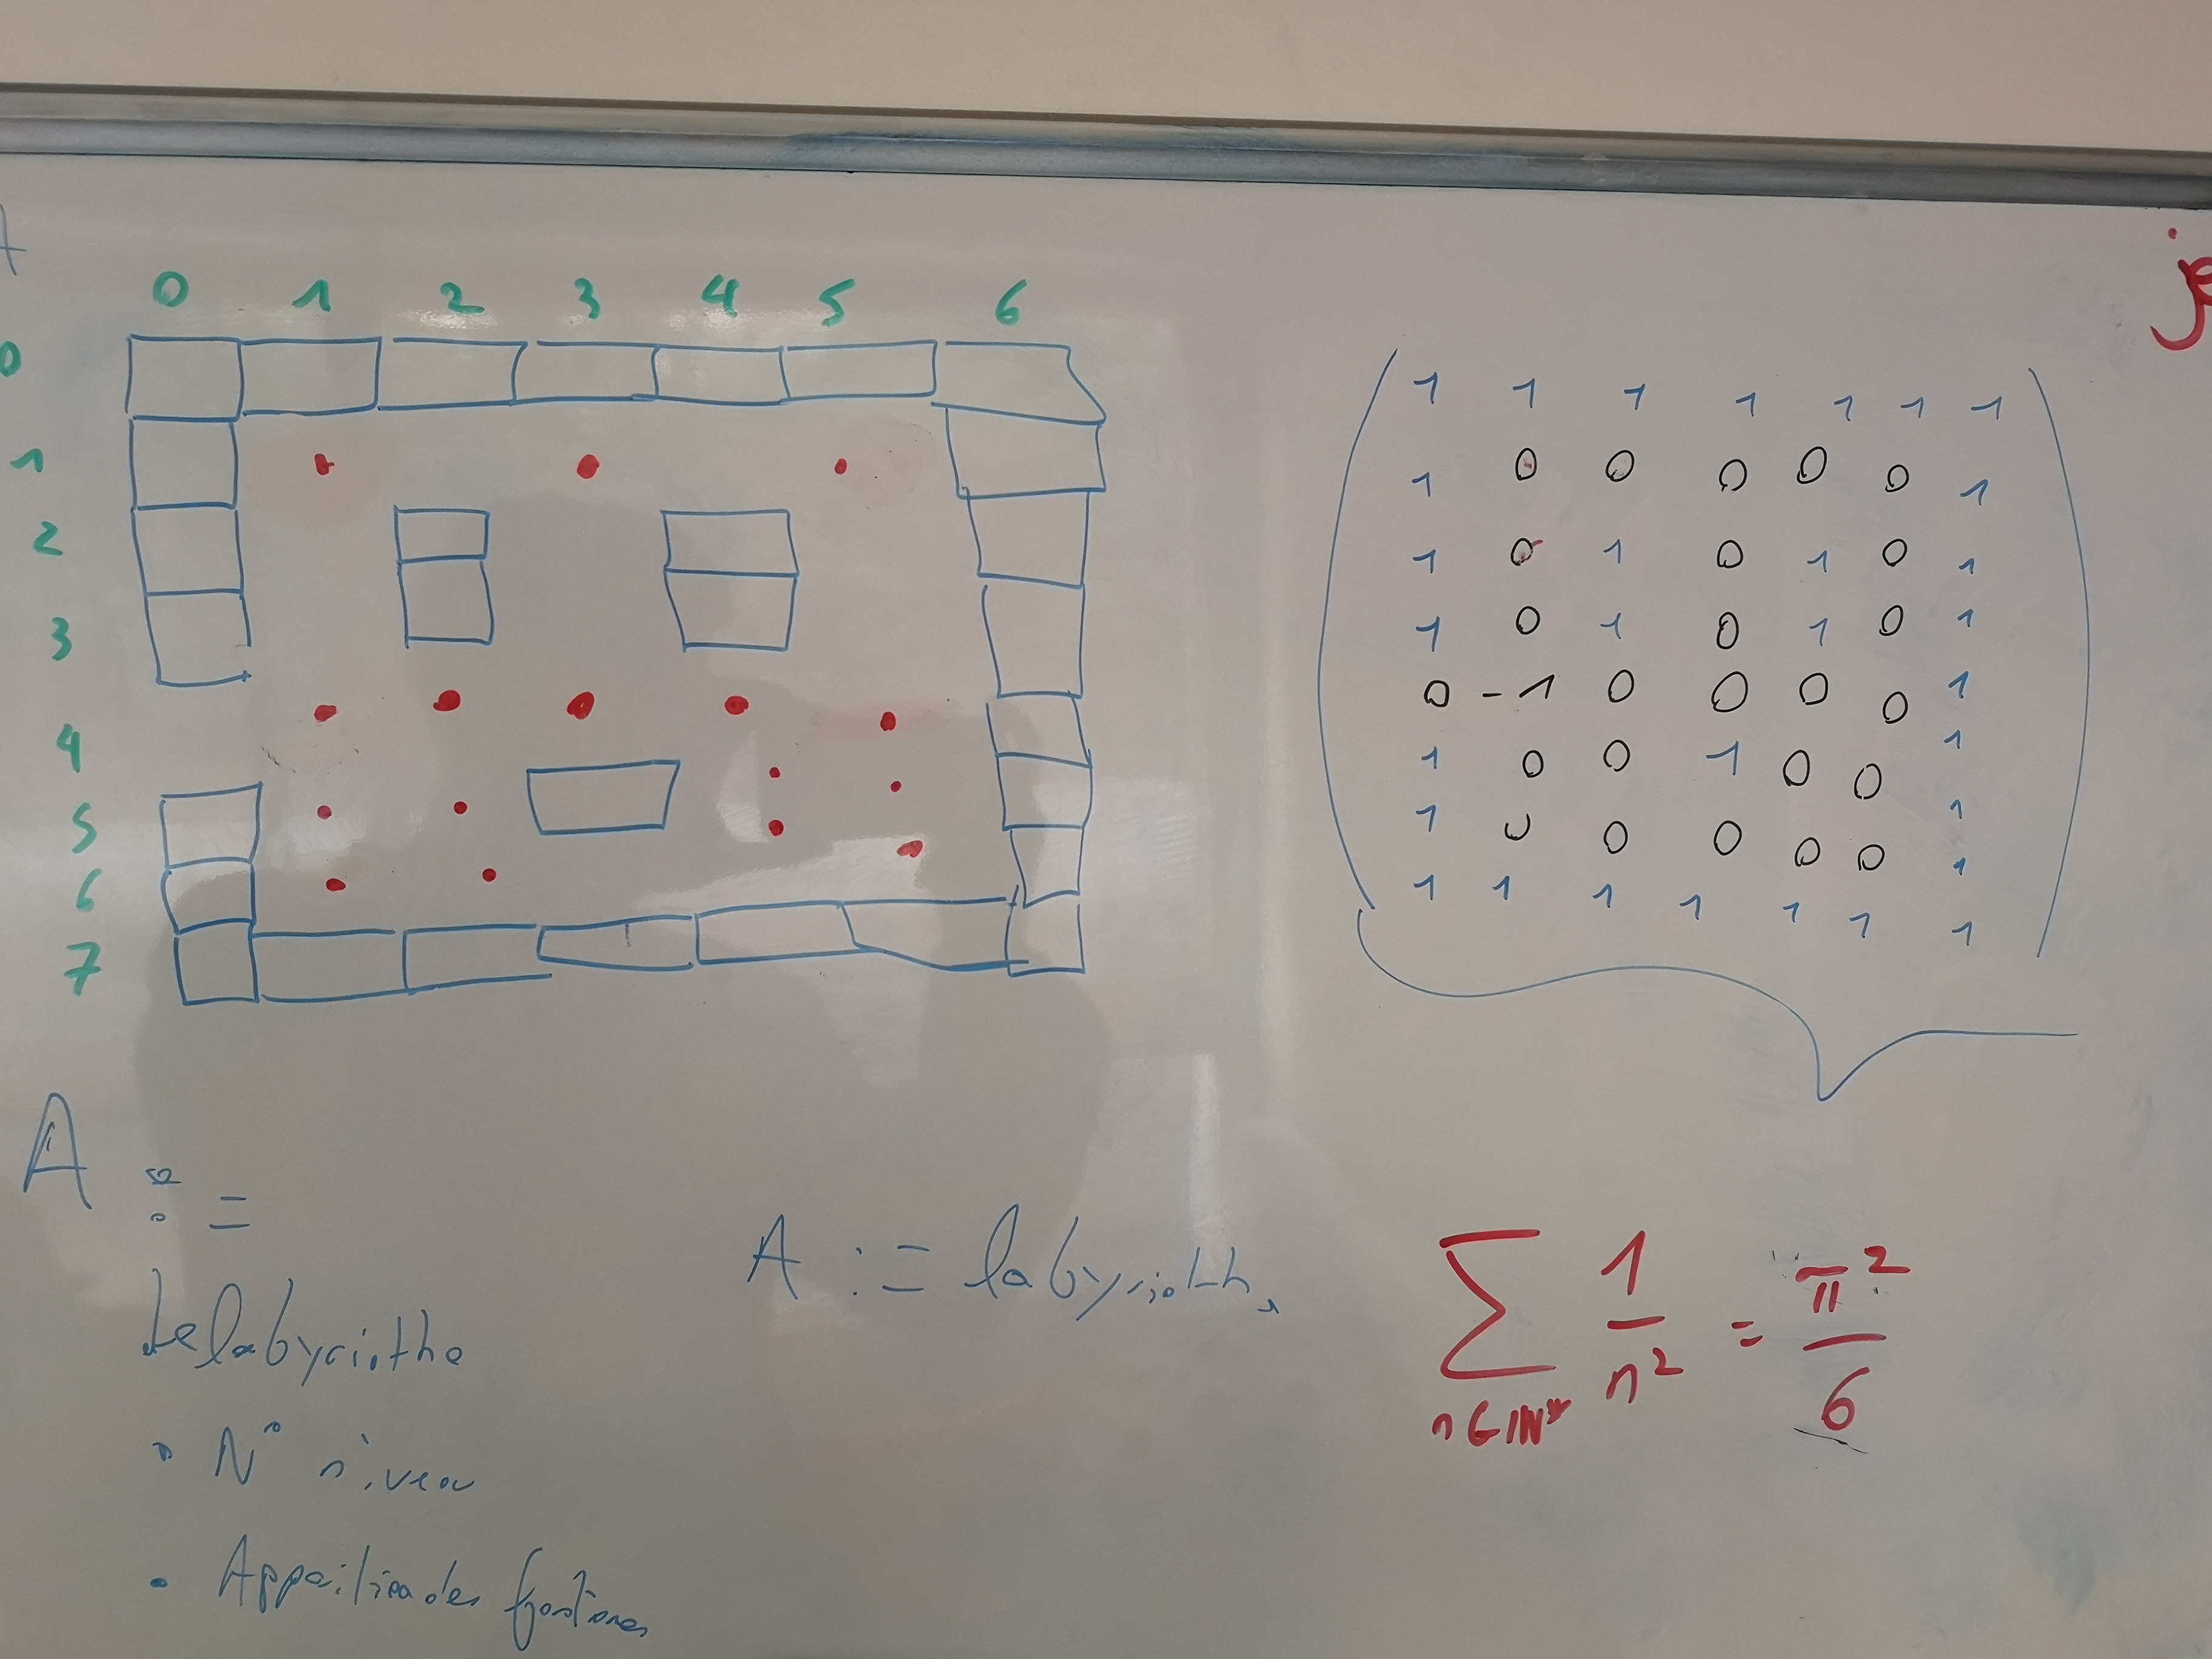 A
je
0 1 2 3 4 5 6
0
1
2
3
4
5
6
7
1 1 1 1 1 1 1
1 0 0 0 0 0 1
1 0 1 0 1 0 1
1 0 1 0 1 0 1
0 -1 0 0 0 0 1
1 0 0 1 0 0 1
1 0 0 0 0 0 1
1 1 1 1 1 1 1
1
A :=
Le labyrinthe
• N° niveau
• Apparition des fantômes
A := labyrinth,
∑ 1/n² = π²/6
n∈ℕ*